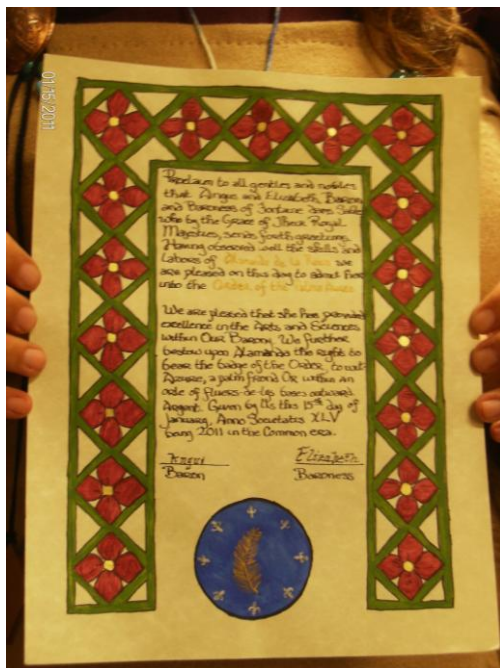 01/15/2011
Proclaim to all gentles and nobles
that Angus and Elizabeth, Baron
and Baroness of
who by the Grace of Their Royal
Majesties, sends forth greetings.
Having observed well the skills and
labors of Alamanda de la we
are pleased on this day to admit her
unto the Order of the
We are pleased that she has
excellence in the Arts and Sciences
within Our Barony. We further
bestow upon Alamanda the right to
bear the badge of the Order, to wit:
Azure, a palm frond Or within an
orle of fleurs-de-lys bases outward
Argent. Given by Us this 15th day of
January, Anno Societates XLV
being 2011 in the Common era.
Angus Elizabeth
Baron Baroness